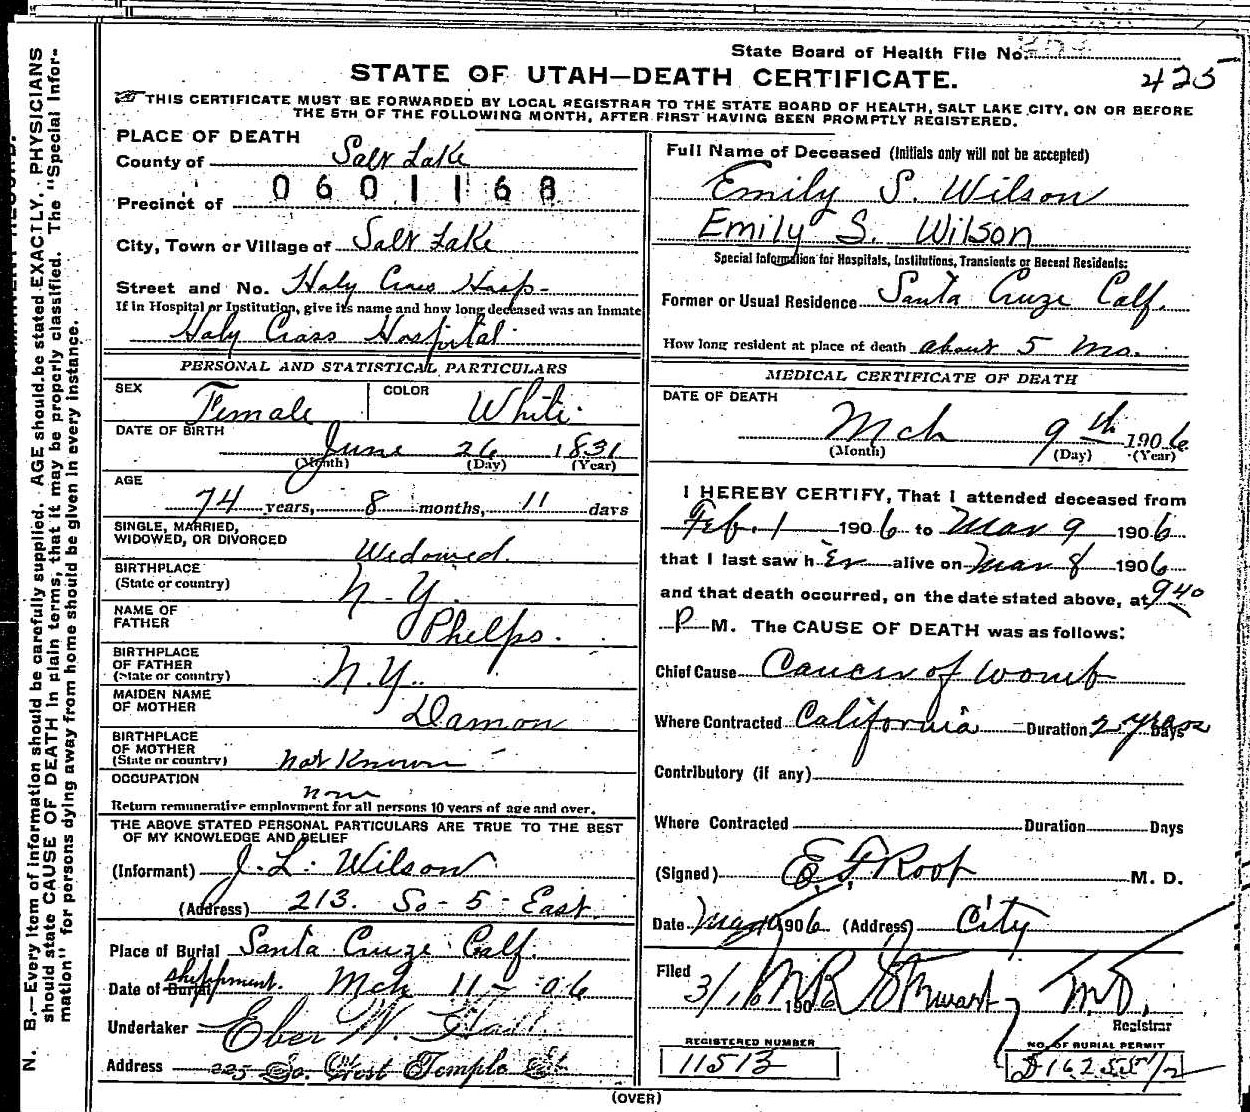 State Board of Health File No.
STATE OF UTAH—DEATH CERTIFICATE.
425
THIS CERTIFICATE MUST BE FORWARDED BY LOCAL REGISTRAR TO THE STATE BOARD OF HEALTH, SALT LAKE CITY, ON OR BEFORE
THE 5TH OF THE FOLLOWING MONTH, AFTER FIRST HAVING BEEN PROMPTLY REGISTERED.
PLACE OF DEATH
County of Salt Lake
0601168
Precinct of
City, Town or Village of Salt Lake
Street and No. Holy Cross Hosp-
If in Hospital or Institution, give its name and how long deceased was an inmate
Holy Cross Hospital
PERSONAL AND STATISTICAL PARTICULARS
SEX Female COLOR White
DATE OF BIRTH June 26 1831
(Month) (Day) (Year)
AGE
74 years, 8 months, 11 days
SINGLE, MARRIED,
WIDOWED, OR DIVORCED Widowed.
BIRTHPLACE
(State or country) N-Y.
NAME OF
FATHER Phelps.
BIRTHPLACE
OF FATHER
(State or country) N.Y.
MAIDEN NAME
OF MOTHER Damon
BIRTHPLACE
OF MOTHER
(State or country) Not Known
OCCUPATION none
Return remunerative employment for all persons 10 years of age and over.
THE ABOVE STATED PERSONAL PARTICULARS ARE TRUE TO THE BEST
OF MY KNOWLEDGE AND BELIEF
(Informant) J. L. Wilson
(Address) 213. So- 5- East.
Place of Burial Santa Cruze Calf.
Date of Burial shippment. Mch 11- 06
Undertaker Eber W.
Address 225 So. West Temple St
Full Name of Deceased (Initials only will not be accepted)
Emily S. Wilson
Emily S. Wilson
Special Information for Hospitals, Institutions, Transients or Recent Residents:
Former or Usual Residence Santa Cruze Calf.
How long resident at place of death about 5 mo.
MEDICAL CERTIFICATE OF DEATH
DATE OF DEATH
Mch 9th 1906
(Month) (Day) (Year)
I HEREBY CERTIFY, That I attended deceased from
Feb. 1 1906 to Mar 9 1906
that I last saw h er alive on Mar 8 1906
and that death occurred, on the date stated above, at 9 40
P M. The CAUSE OF DEATH was as follows:
Chief Cause Cancer of womb
Where Contracted California Duration 2 years Days
Contributory (if any)
Where Contracted Duration Days
(Signed) E. F. Root M. D.
Date Mar 1906 (Address) City
Filed 3/ 190 M R Stewart M.D.
Registrar
REGISTERED NUMBER
11513
NO. OF BURIAL PERMIT
(OVER)
N. B.—Every item of information should be carefully supplied. AGE should be stated EXACTLY. PHYSICIANS
should state CAUSE OF DEATH in plain terms, that it may be properly classified. The "Special Infor-
mation" for persons dying away from home should be given in every instance.